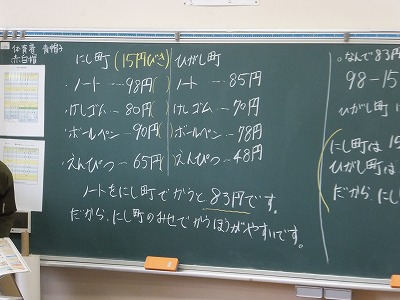 体育着 黄帽子
赤白帽
にし町(15円びき)
・ノート…98円( )
・けしゴム…80円( )
・ボールペン…90円( )
・えんぴつ…65円( )
ひがし町
・ノート…85円
・けしゴム…70円
・ボールペン…78円
・えんぴつ…48円
ノートをにし町でかうと、83円です。
だから、にし町のみせでかうほうがやすいです。
○なんで83円
98-15
ひがし町
にし町は15
ひがし町は
だから、にし